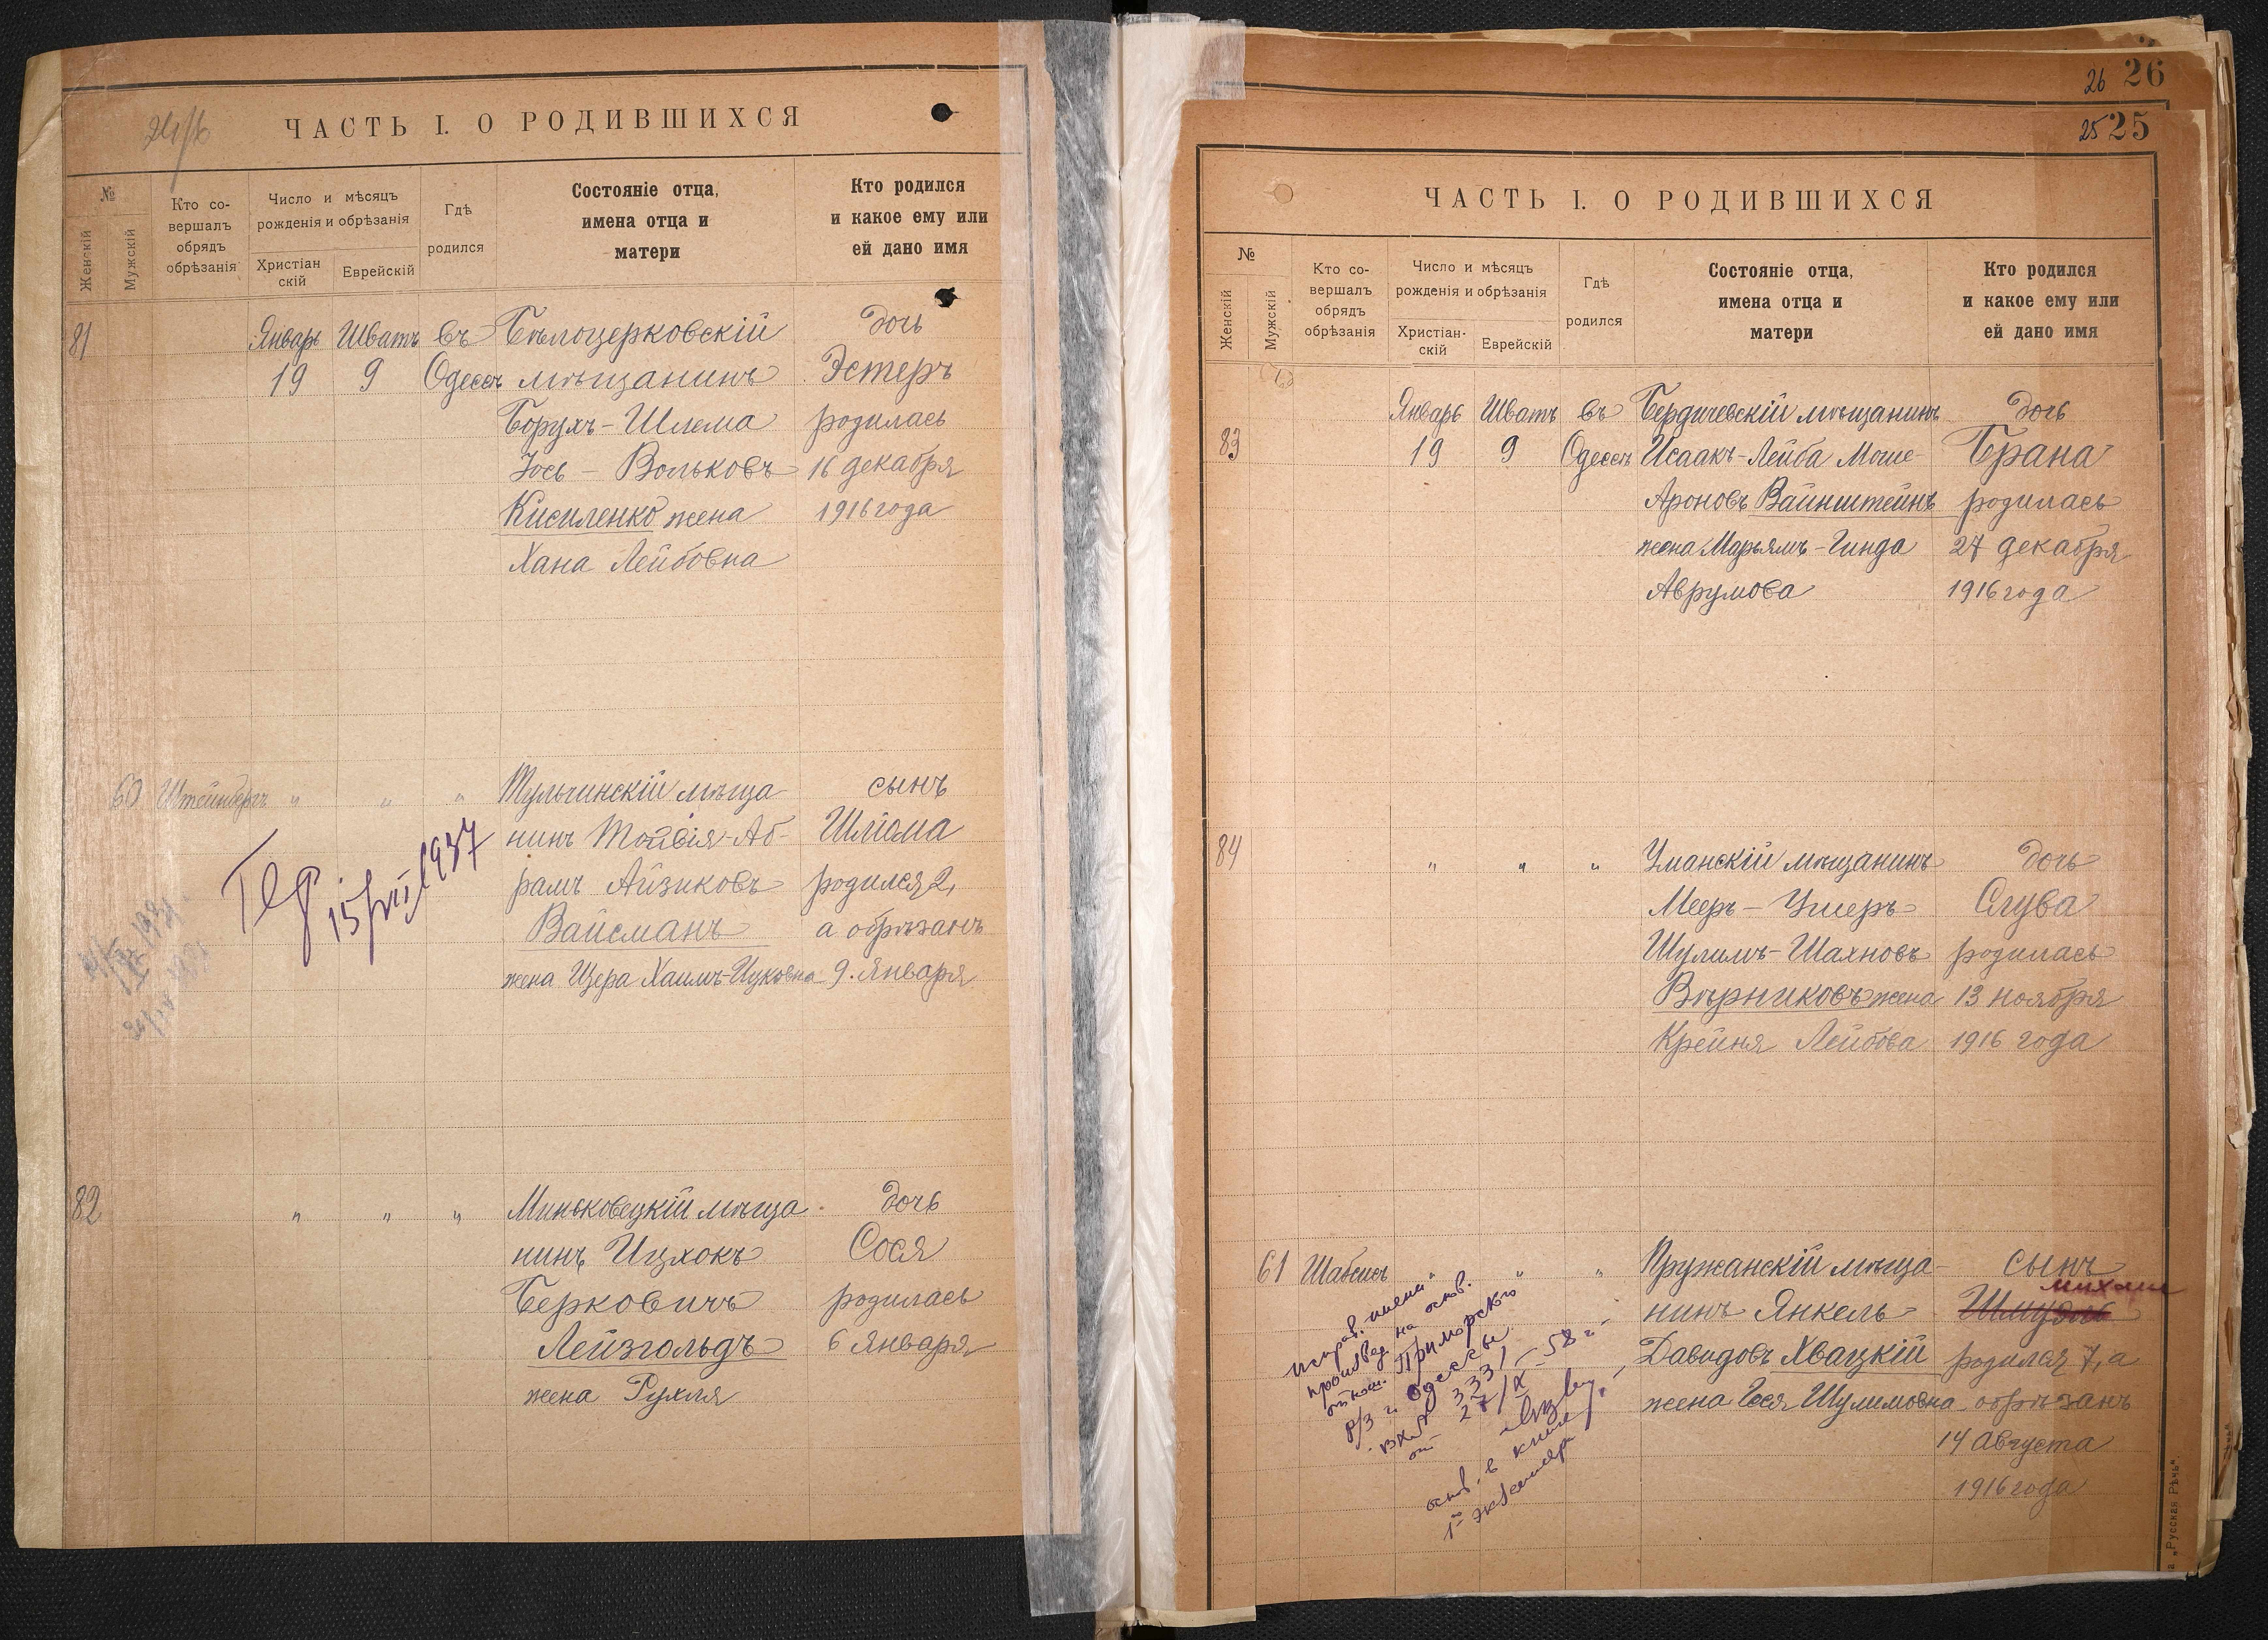 ЧАСТЬ I. О РОДИВШИХСЯ
№
Женскій
Мужскій
Кто со-
вершалъ
обрядъ
обрѣзанія
Число и мѣсяцъ
рожденія и обрѣзанія
Христіан
скій
Еврейскій
Гдѣ
родился
Состояніе отца,
имена отца и
матери
Кто родился
и какое ему или
ей дано имя
81 Январь Шватъ въ Бѣлоцерковскій дочь
19 9 Одессѣ мѣщанинъ Эстеръ
Борухъ-Шлема родилась
Іось-Вольковъ 16 декабря
Кисиленко жена 1916 года
Хана Лейбовна
60 Штейнбергъ " " " Тульчинскій мѣща- сынъ
нинъ Тойвія-Аб- Шліома
рамъ Айзиковъ родился 2,
Вайсманъ а обрѣзанъ
жена Цера Хаимъ-Ицковна 9 Января
15/VII 1937
82 " " " Миньковецкій мѣща- дочь
нинъ Ицхокъ Сося
Берковичъ родилась
Лейзгольдъ 6 Января
жена Рухля
26 26
25 25
ЧАСТЬ I. О РОДИВШИХСЯ
№
Женскій
Мужскій
Кто со-
вершалъ
обрядъ
обрѣзанія
Число и мѣсяцъ
рожденія и обрѣзанія
Христіан-
скій
Еврейскій
Гдѣ
родился
Состояніе отца,
имена отца и
матери
Кто родился
и какое ему или
ей дано имя
Январь Шватъ въ Бердичевскій мѣщанинъ дочь
83 19 9 Одессѣ Исаакъ-Лейба Моше- Брана
Ароновъ Вайнштейнъ родилась
жена Марьямъ-Гинда 27 декабря
Аврумова 1916 года
84 " " " Уманскій мѣщанинъ дочь
Мееръ-Ушеръ Слува
Шулимъ-Шахновъ родилась
Вѣрниковъ жена 13 ноября
Крейня Лейбова 1916 года
61 Шабсисъ " " " Пружанскій мѣща- сынъ
михаил
нинъ Янкель- Шмудль
Давидовъ Хвацкій родился 7, а
жена Геся Шулимовна обрѣзанъ
14 Августа
1916 года
исправ. имени
произвед. на основ.
отнош. Приморского
р/З г. Одессы
вх № 3331
от 27/X-58 г.
основ. в книге
1го экземпляра
„Русская Рѣчь".